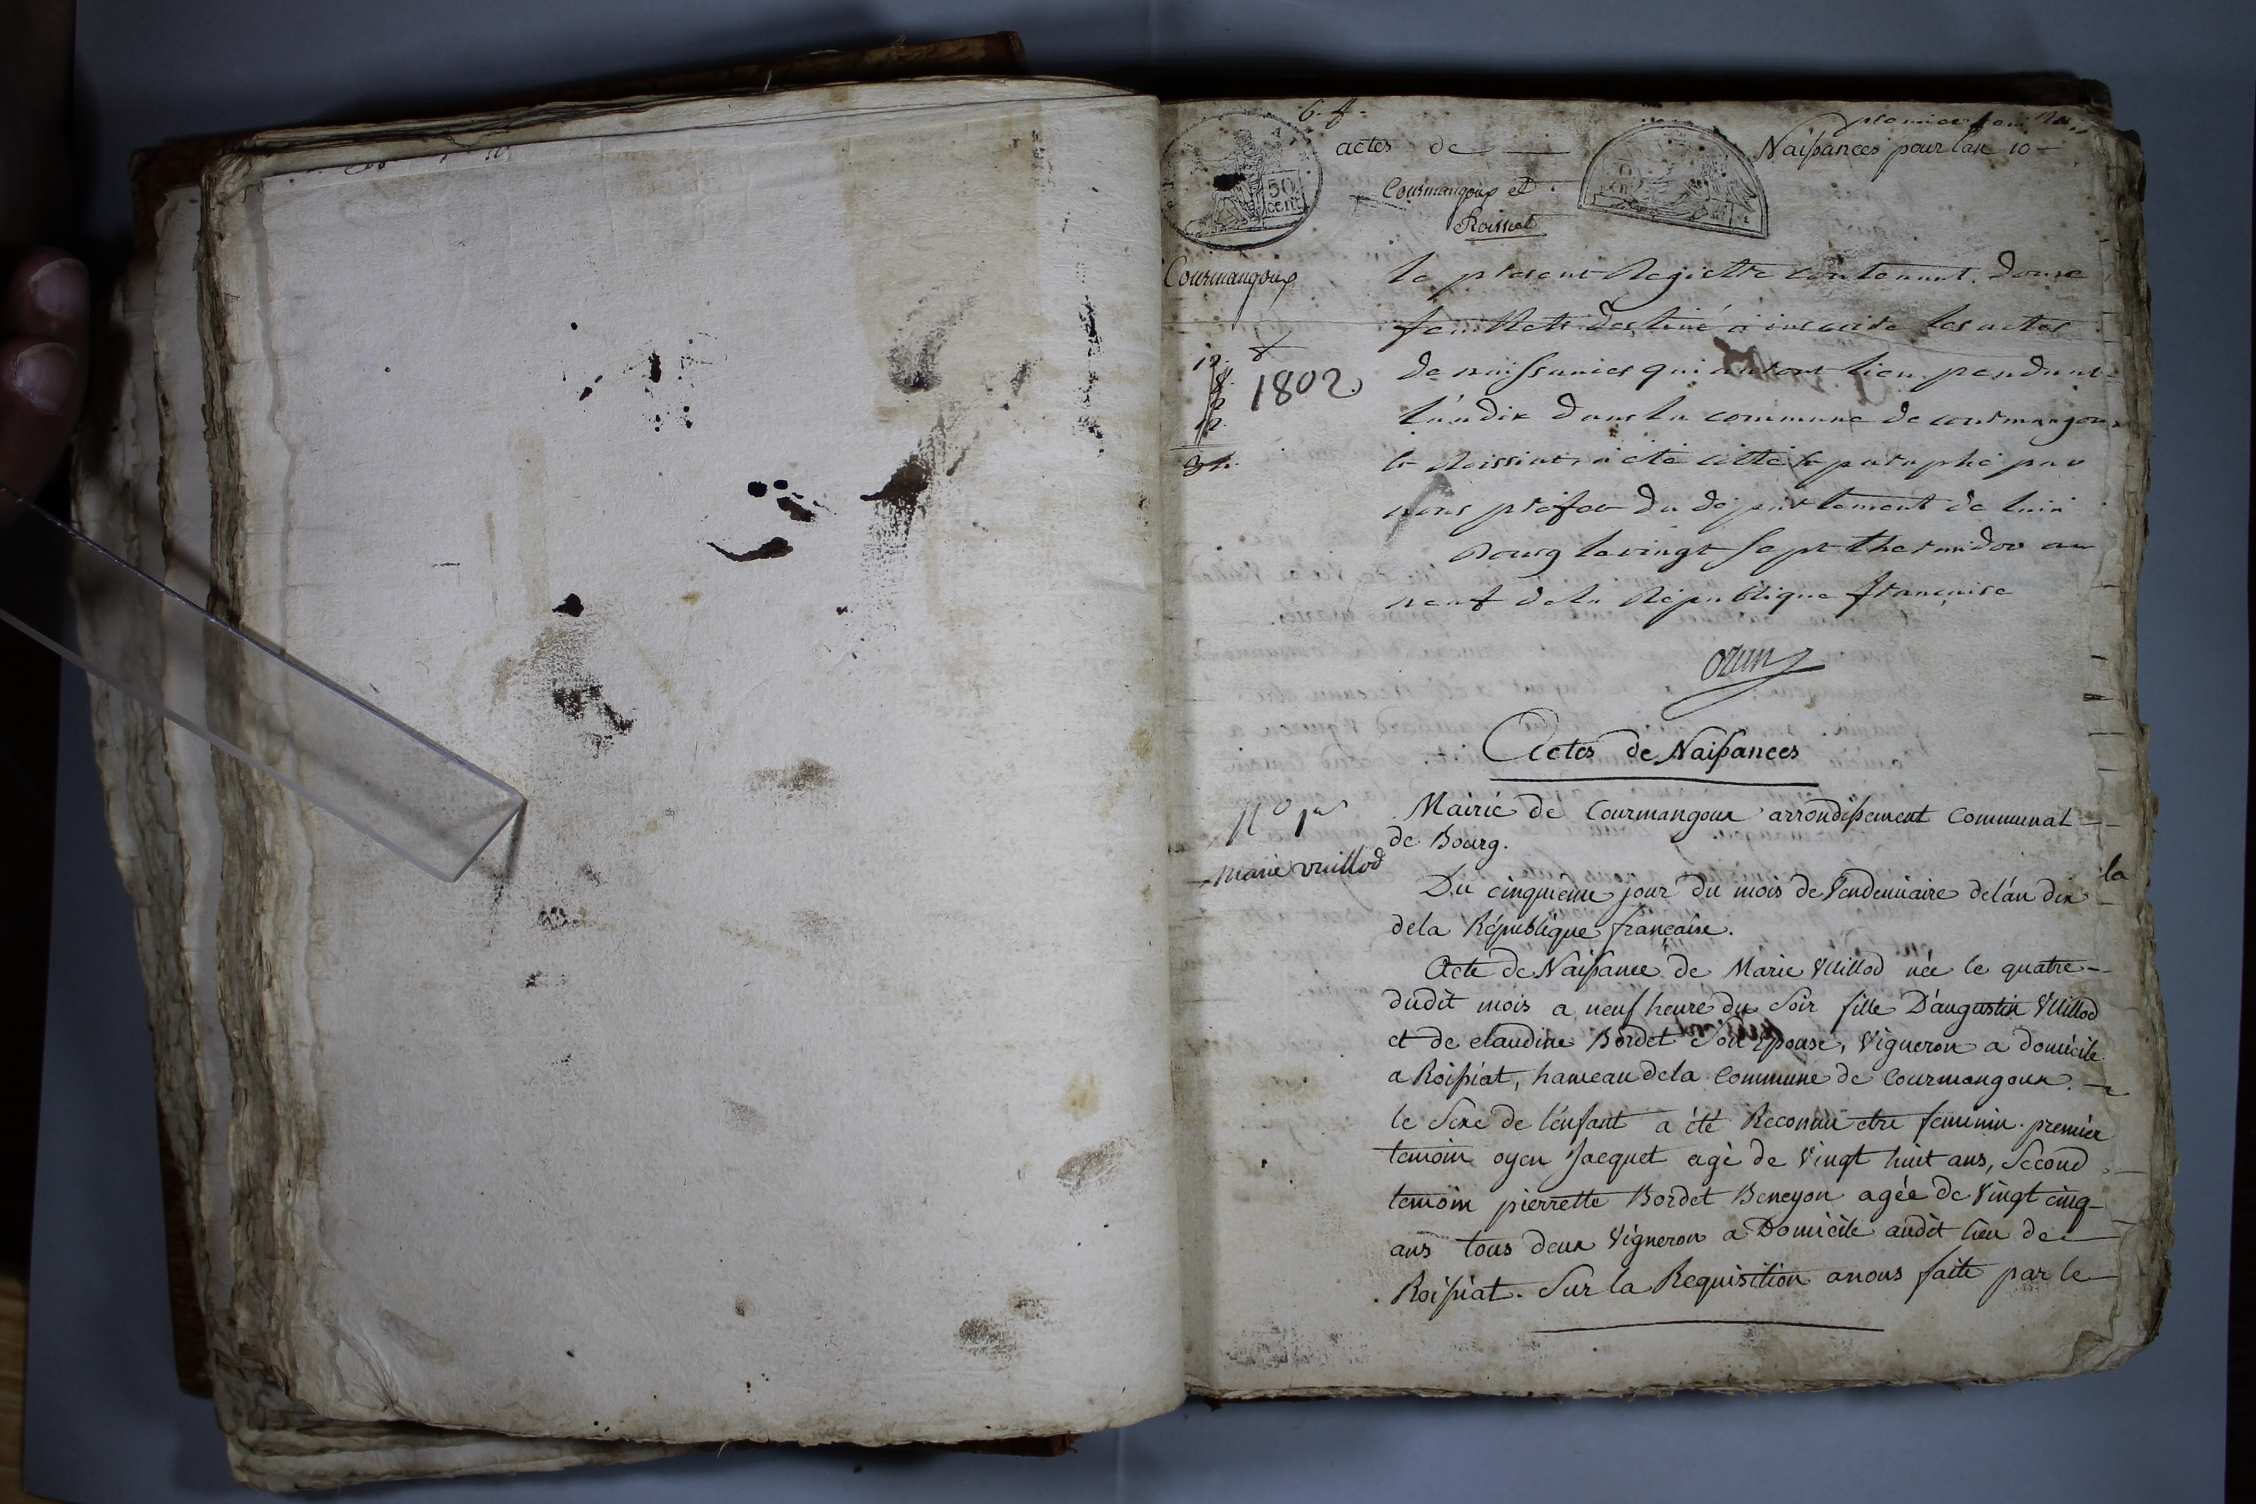 premier feuillet
6. f.
actes de Naissances pour l'an 10
Courmangoux et
Roissiat
50
cent
Courmangoux
le present Registre contenant douze
feuillets destiné à inscrire les actes
de naissances qui auront lieu pendant
l'an dix dans la commune de courmangoux
et Roissiat, a été cotté et paraphé par
nous préfet du département de l'ain
Bourg le vingt sept thermidor an
neuf de la République française
1802
ozun
Actes de Naissances
N.o 1er
Marie vuillod
Mairie de Courmangoux arrondissement Communal
de Bourg.
Du cinquième jour du mois de Vendemiaire de l'an dix
de la République française.
la
Acte de Naissance de Marie Vuillod née le quatre
dudit mois a neuf heure du Soir fille D'augustin Vuillod
et de claudine Bordet Son Epouse, Vigneron a domicile
a Roissiat, hameau de la Commune de Courmangoux.
le Sexe de l'enfant a été Reconnu etre feminin. premier
temoin oyen Jacquet agé de Vingt huit ans, Second
temoin pierrette Bordet Beneyon agée de Vingt cinq
ans tous deux Vigneron a Domicile audit lieu de
Roissiat. Sur la Requisition a nous faite par le